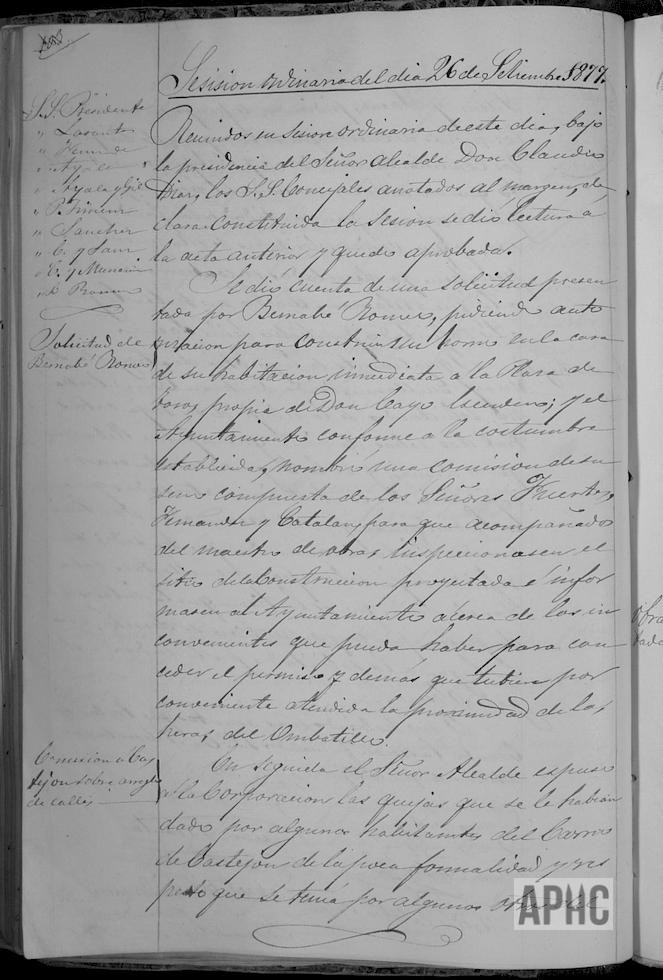 Sesision ordinaria del dia 26 de Setiembre 1877.
S.S. Presidente
" Lasanta
" Ayala
" Ayala y Gil
" Jimenez
" Sanchez
Reunidos en sision ordinaria de este dia, bajo
la presidencia del Señor Alcalde Don Claudio
Diaz, los S.S. Concejales anotados al margen, de
clara constituida la sesion se dió lectura á
la acta anterior y quedó aprobada.
Solicitud de
Bernabé Romeo
Se dió cuenta de una solicitud presen
tada por Bernabé Romeo, pidiendo auto
rizacion para construir un horno en la casa
de su habitacion inmediata a la Plaza de
toros propia de Don Cayo Escudero; y el
Ayuntamiento conforme a la costumbre
establecida, nombró una comision de su
seno compuesta de los Señores Fuertes,
Hernandez y Catalan, para que acompañado
del maestro de obras inspeccionasen el
sitio de la construccion proyectada é infor
masen al Ayuntamiento acerca de los in
convenientes que pueda haber para con
ceder el permiso y demás que tubiera por
conveniente atendida la proximidad de las
heras del Ombatillo.
Comision a Cas
tejon sobre arreglo
de calles
En seguida el Señor Alcalde expuso
a la Corporacion las quejas que se le habian
dado por algunos habitantes del Barrio
de Castejon de la poca formalidad y res
peto que se tenia por algunos
APHC